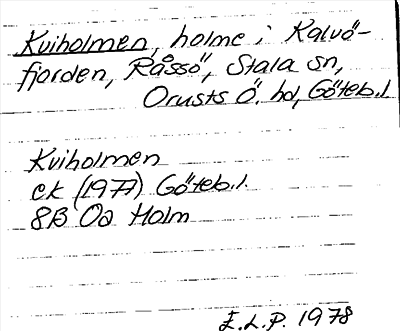 Kviholmen, holme i Kalvö-
fjorden, Råssö, Stala sn,
Orusts Ö. hd, Göteb.l
Kviholmen
ek (1977) Göteb.l.
8B 0a Holm
E.L.P. 1978